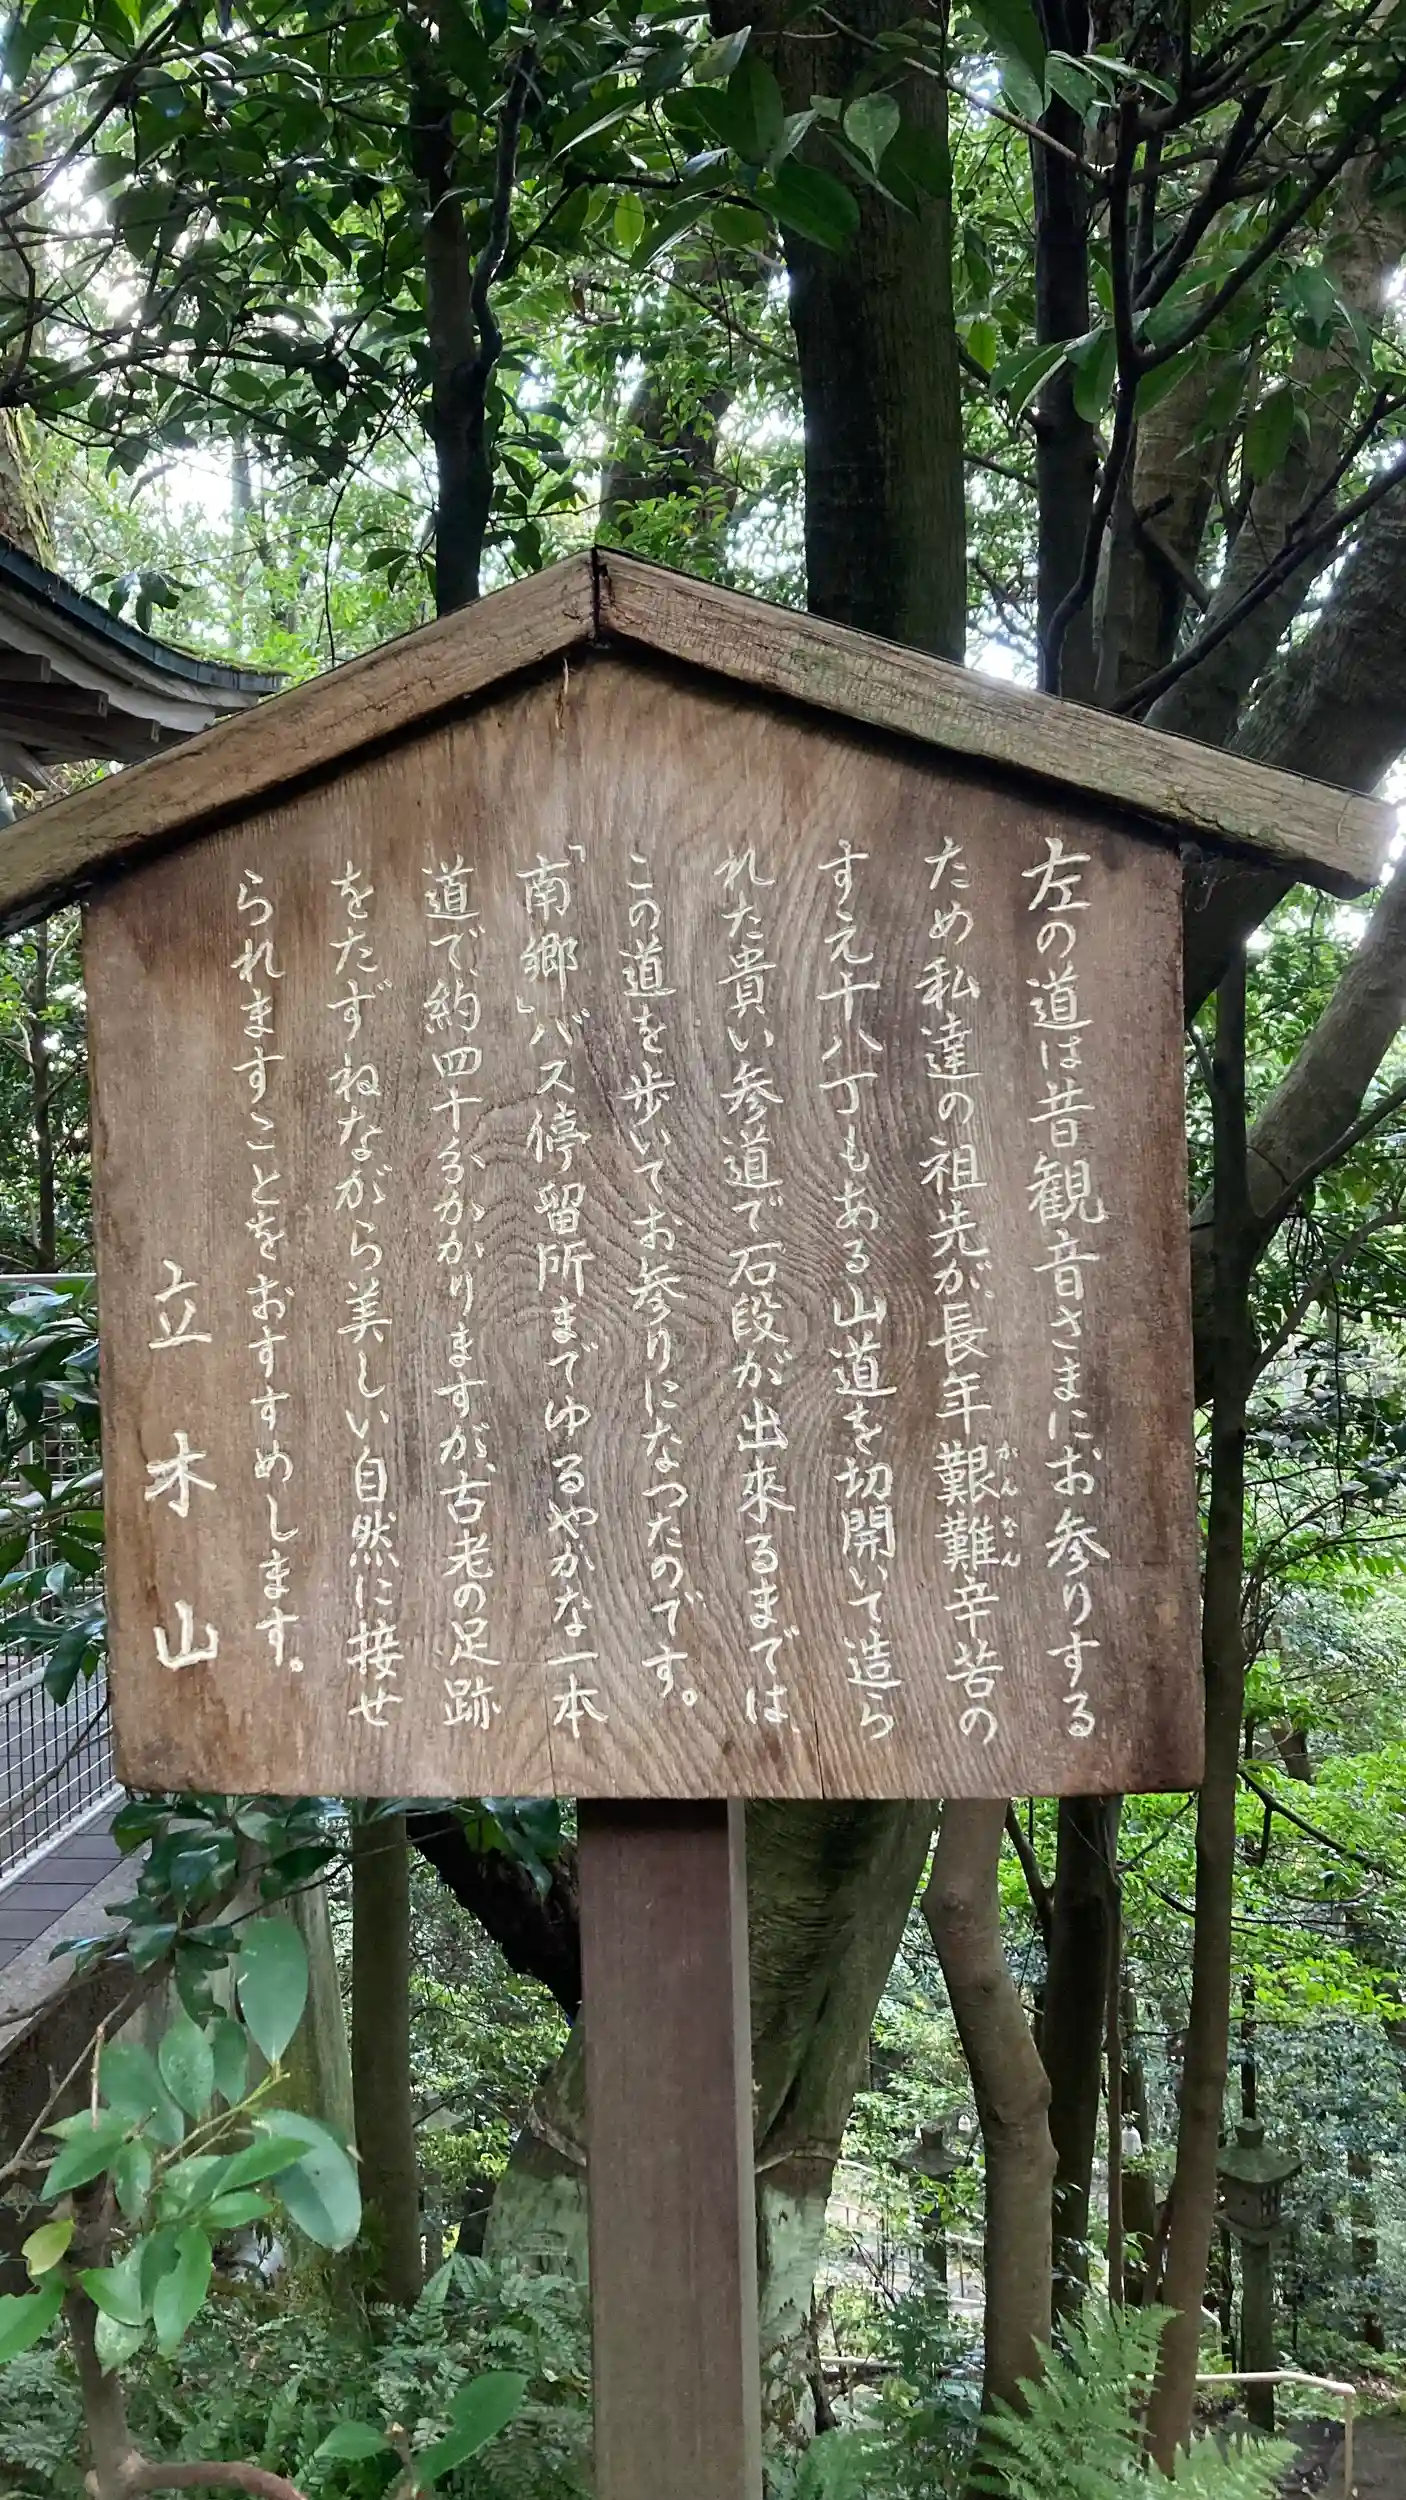 左の道は昔観音さまにお参りする
ため私達の祖先が、長年艱難辛苦の
かんなん
すえ十八丁もある山道を切開いて造ら
れた貴い参道で石段が出來るまでは、
この道を歩いてお参りになつたのです。
「南郷」バス停留所までゆるやかな一本
道で、約四十分かかりますが、古老の足跡
をたずねながら美しい自然に接せ
られますことをおすすめします。
立木山